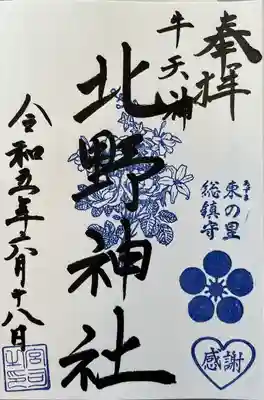 奉拝
牛天神
北野神社
令和五年六月十八日
あずま
東の里
総鎮守
感謝